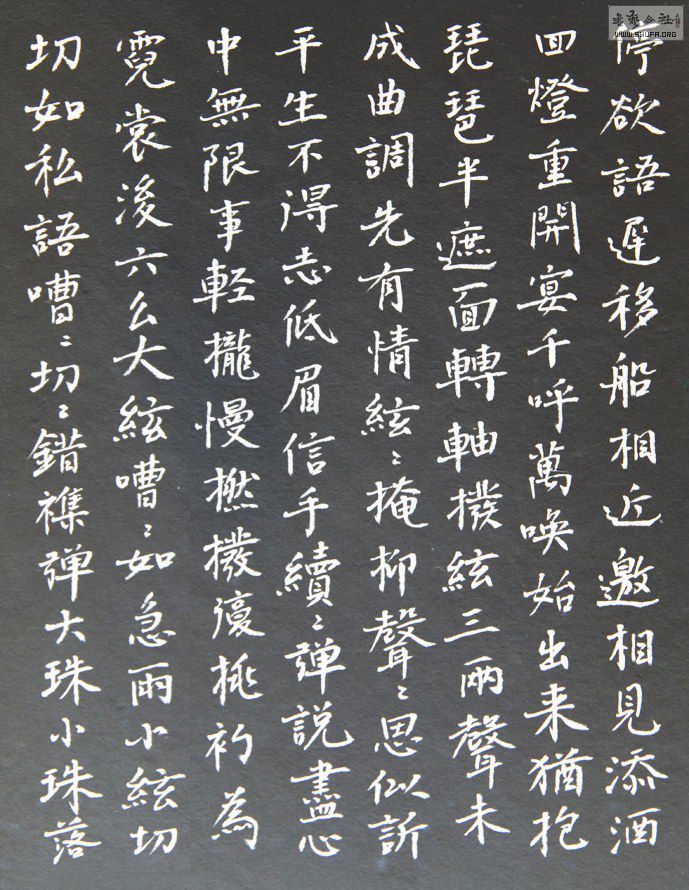 停欲語遲移船相近邀相見添酒
囬燈重開宴千呼萬喚始出来猶抱
琵琶半遮面轉軸撥絃三兩聲未
成曲調先有情絃〻掩抑聲〻思似訴
平生不得志低眉信手續〻彈説盡心
中無限事軽攏慢撚撥復挑初為
霓裳後六幺大絃嘈〻如急雨小絃切
切如私語嘈〻切〻錯雜彈大珠小珠落
書藝公社
WWW.SHUFA.ORG